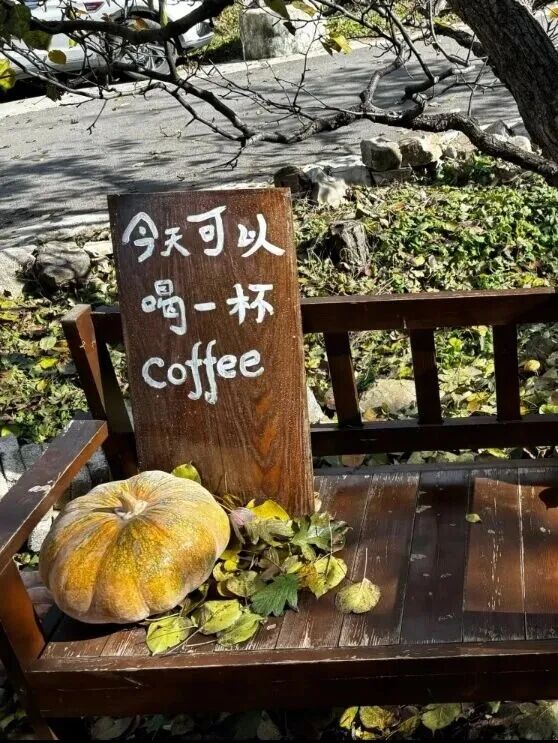 今天可以
喝一杯
coffee